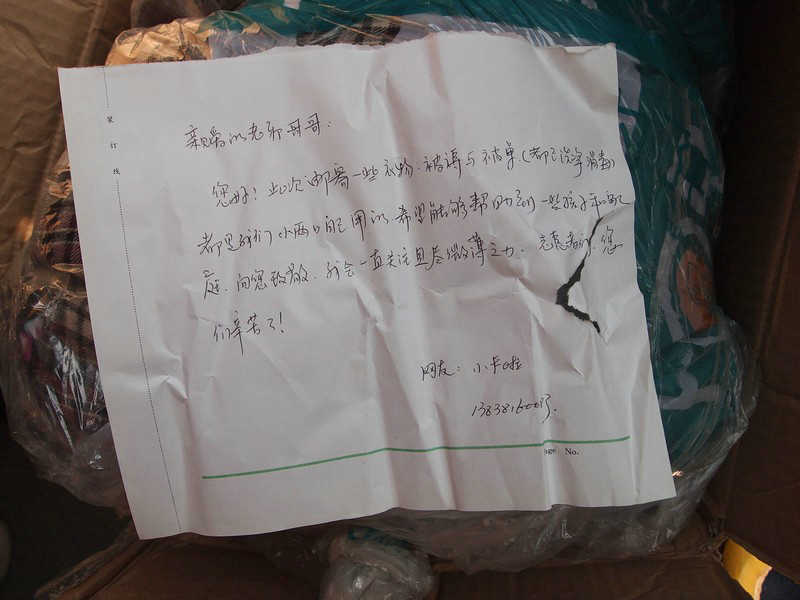 装订线
亲爱的老邪哥哥：
您好！此次邮寄一些衣物、被褥与被单（都已洗净消毒）
都是我们小两口自己用的，希望能够帮助到一些孩子和家
庭，向您致敬，我会一直关注且尽微薄之力。志愿者们，您
们辛苦了！
网友：小卡啦
No.